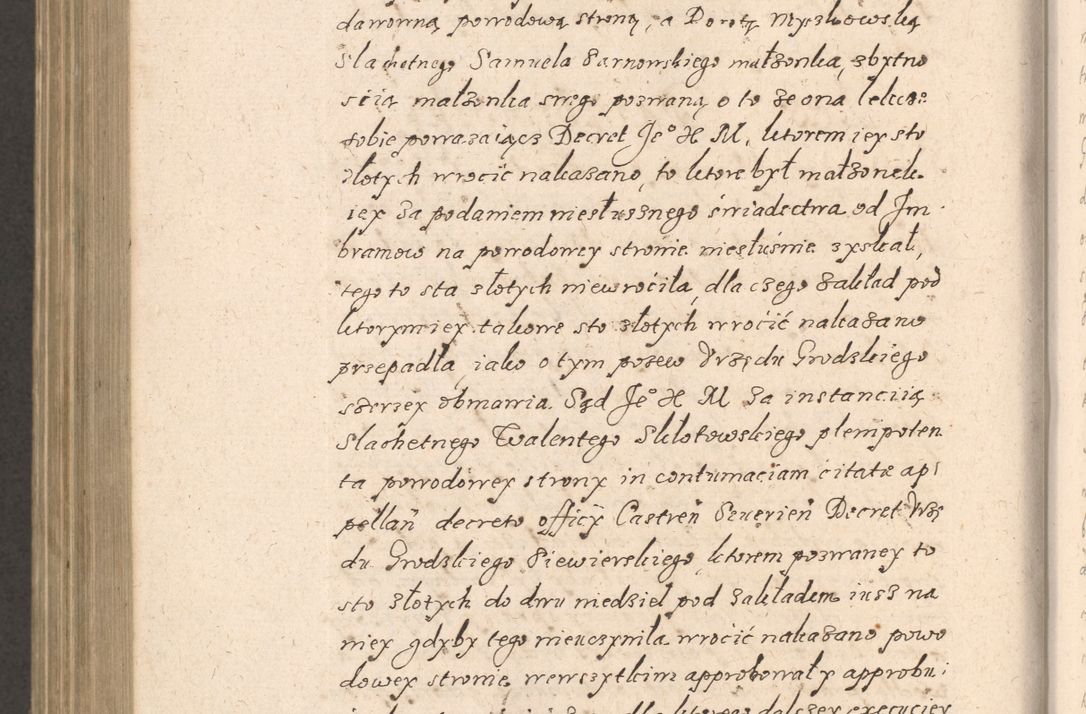 dawonną powodową stroną, a Dorotę Myszkowską
Slachetnego Samuela Sarnowskiego małżonką, zbytno
scią małżonka swego pozwaną o to że ona lekce
sobie poważaiącz Decret Je° X M, ktorem iey sto
złotych wrocić nakazano, to ktore był małżonek
iey za podaniem niesłusznego świadectwa od Im
bramow na powodowey stronie niesłuśnie zyskał,
tego to sta złotych niewrociła, dla czego zakład pod
ktorym iey takowe sto złotych wroćić nakazano
przepadła, iako o tym pozew Vrzędu Grodzkiego
szerzey obmawia. Sąd Je° X M za instanciią
Slachetnego Walentego Sklotowskiego plenipoten
ta powodowey strony in contumaciam citatæ ap
pellan decreto officy Castren Severien Decret Vrzę
du Grodzkiego Siewierskiego, ktorem pozwaney to
sto złotych do dwu niedziel pod zakładem iusz na
niey gdyby tego nieuczyniła wroćić nakazano powo
dowey stronie wewszytkim approbował y approbu
dla ktorego dalszey execuciey